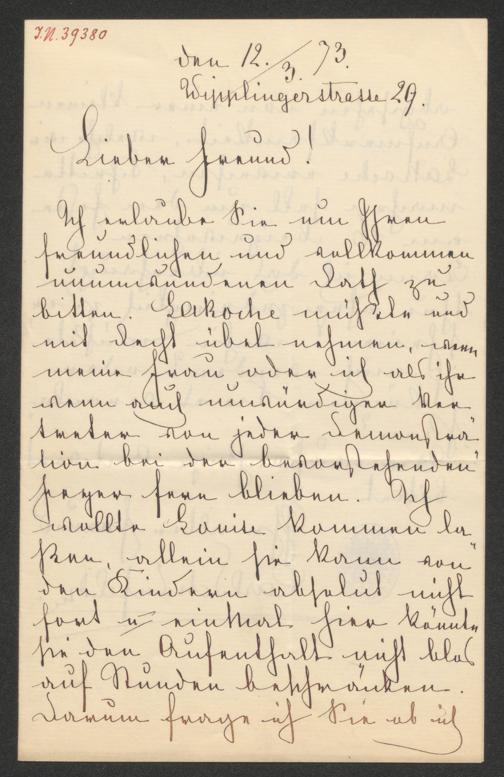 I.N. 39380
den 12./3. 73.
Wipplingerstrasse 29.
Lieber Freund!
Ich erlaube Sie um Ihren
freundlichen und vollkommen
unumwundenen Rath zu
bitten. müßte und
mit Recht übel nehmen, wenn
meine Frau oder ich als ihr
wenn auch unwürdiger Ver
treter von jeder Demonstra
tion bei der bevorstehenden
Feyer fern blieben. Ich
wollte Louise kommen la
ßen, allein sie kann von
den Kindern absolut nicht
fort u einmal hier könnte
sie den Aufenthalt nicht blos
auf Stunden beschränken.
Darum frage ich Sie ob ich